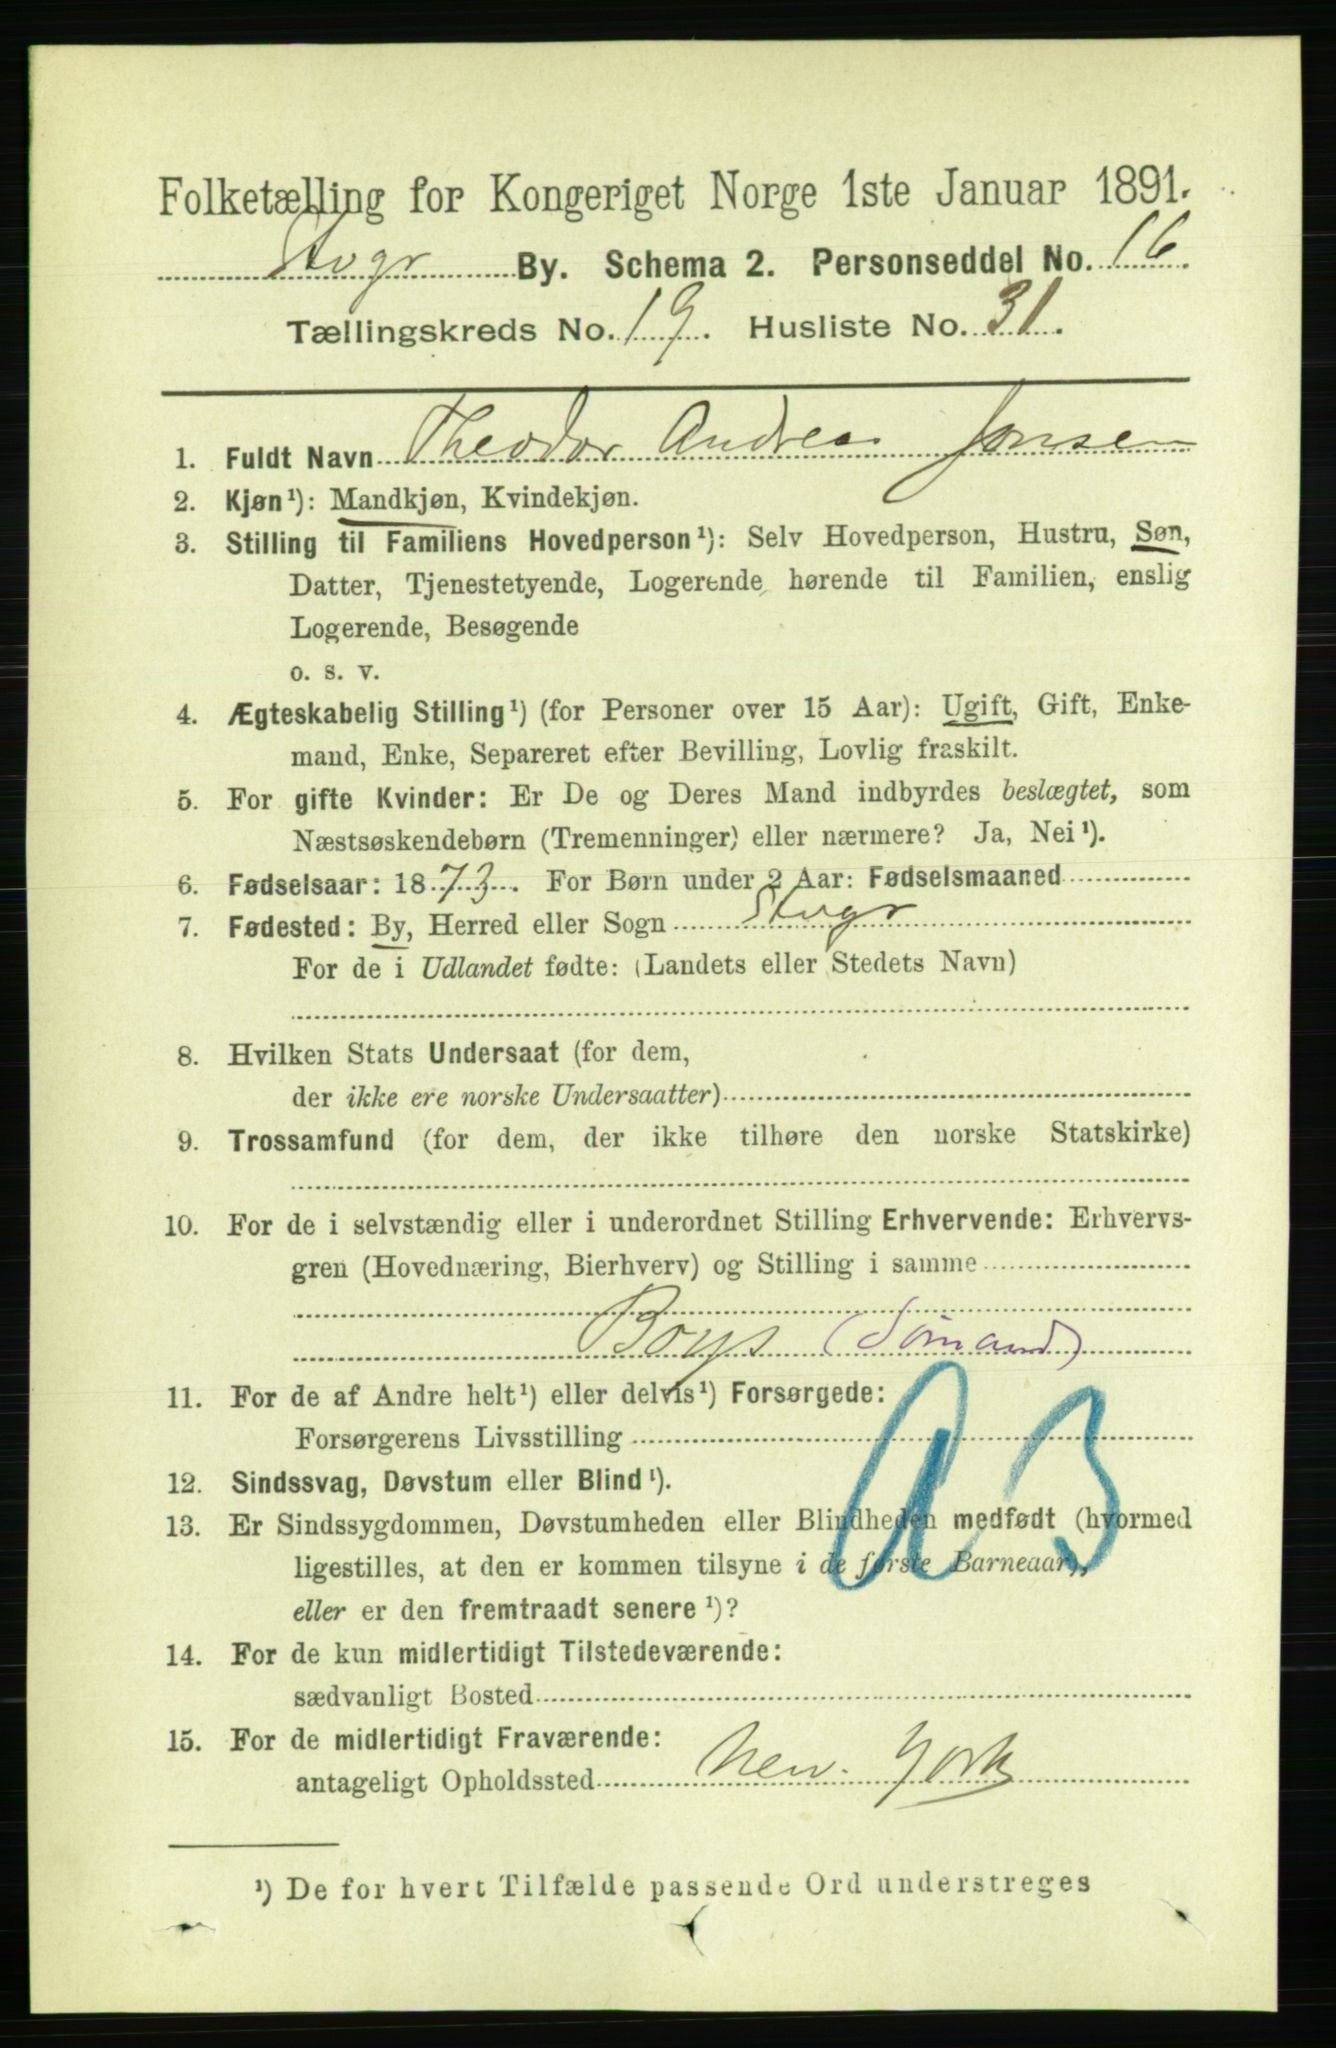 Folketælling for Kongeriget Norge 1ste Januar 1891.
Stvgr By. Schema 2. Personseddel No. 16
Tællingskreds No. 19. Husliste No. 31.
1. Fuldt Navn Theodor Andreas Jonsen
2. Kjøn¹): Mandkjøn, Kvindekjøn.
3. Stilling til Familiens Hovedperson¹): Selv Hovedperson, Hustru, Søn,
Datter, Tjenestetyende, Logerende hørende til Familien, enslig
Logerende, Besøgende
o. s. v.
4. Ægteskabelig Stilling¹) (for Personer over 15 Aar): Ugift, Gift, Enke-
mand, Enke, Separeret efter Bevilling, Lovlig fraskilt.
5. For gifte Kvinder: Er De og Deres Mand indbyrdes beslægtet, som
Næstsøskendebørn (Tremenninger) eller nærmere? Ja, Nei¹).
6. Fødselsaar: 1873. For Børn under 2 Aar: Fødselsmaaned
7. Fødested: By, Herred eller Sogn Stvgr
For de i Udlandet fødte: (Landets eller Stedets Navn)
8. Hvilken Stats Undersaat (for dem,
der ikke ere norske Undersaatter)
9. Trossamfund (for dem, der ikke tilhøre den norske Statskirke)
10. For de i selvstændig eller i underordnet Stilling Erhvervende: Erhvervs-
gren (Hovednæring, Bierhverv) og Stilling i samme
Boys (Sömand)
11. For de af Andre helt¹) eller delvis¹) Forsørgede:
Forsørgerens Livsstilling
12. Sindssvag, Døvstum eller Blind¹).
13. Er Sindssygdommen, Døvstumheden eller Blindheden medfødt (hvormed
ligestilles, at den er kommen tilsyne i de første Barneaar),
eller er den fremtraadt senere¹)?
14. For de kun midlertidigt Tilstedeværende:
sædvanligt Bosted
15. For de midlertidigt Fraværende:
antageligt Opholdssted New. York
¹) De for hvert Tilfælde passende Ord understreges